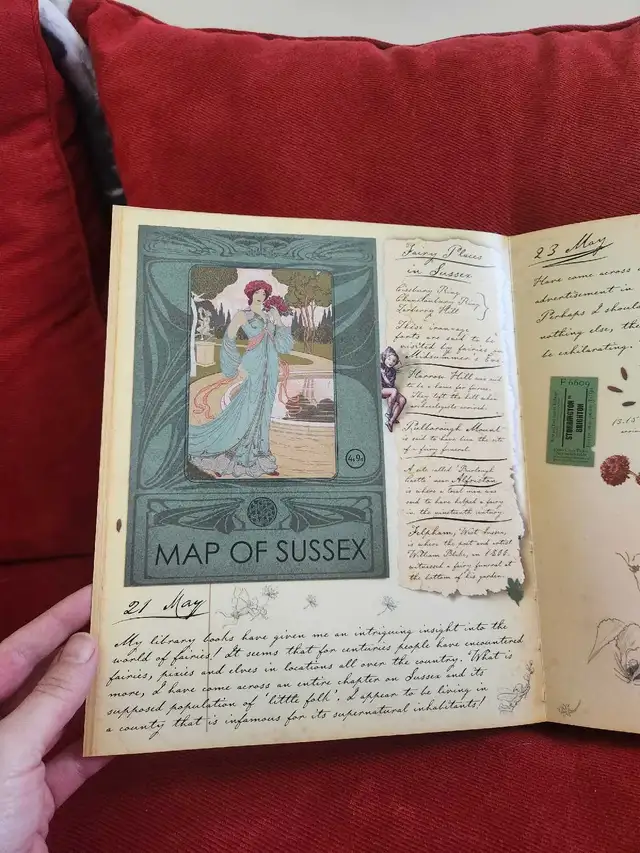 4s 9d
MAP OF SUSSEX
Fairy Places
in Sussex
Cissbury Ring
Chanctonbury Ring
Torberry Hill
These
forts are said to be
visited by fairies on
Midsummer's Eve
Harrow Hill was said
to be a home for fairies.
They left the hill when
archaeologists arrived.
Pulborough Mount
is said to have been the site
of a fairy funeral
A site called 'Burlough
Castle' near Alfriston
is where a local man was
said to have helped a fairy
in the nineteenth century.
Felpham, West Sussex,
is where the poet and artist
William Blake, in 1800,
witnessed a fairy funeral at
the bottom of his garden.
21 May
My library books have given me an intriguing insight into the
world of fairies! It seems that for centuries people have encountered
fairies, pixies and elves in locations all over the country. What is
more, I have come across an entire chapter on Sussex and its
supposed population of 'little folk'. I appear to be living in
a county that is infamous for its supernatural inhabitants!
23 May
Have come across
advertisement in
Perhaps I should
nothing else, th
be exhilarating.
F 6609
STORRINGTON
BRIGHTON
13.15